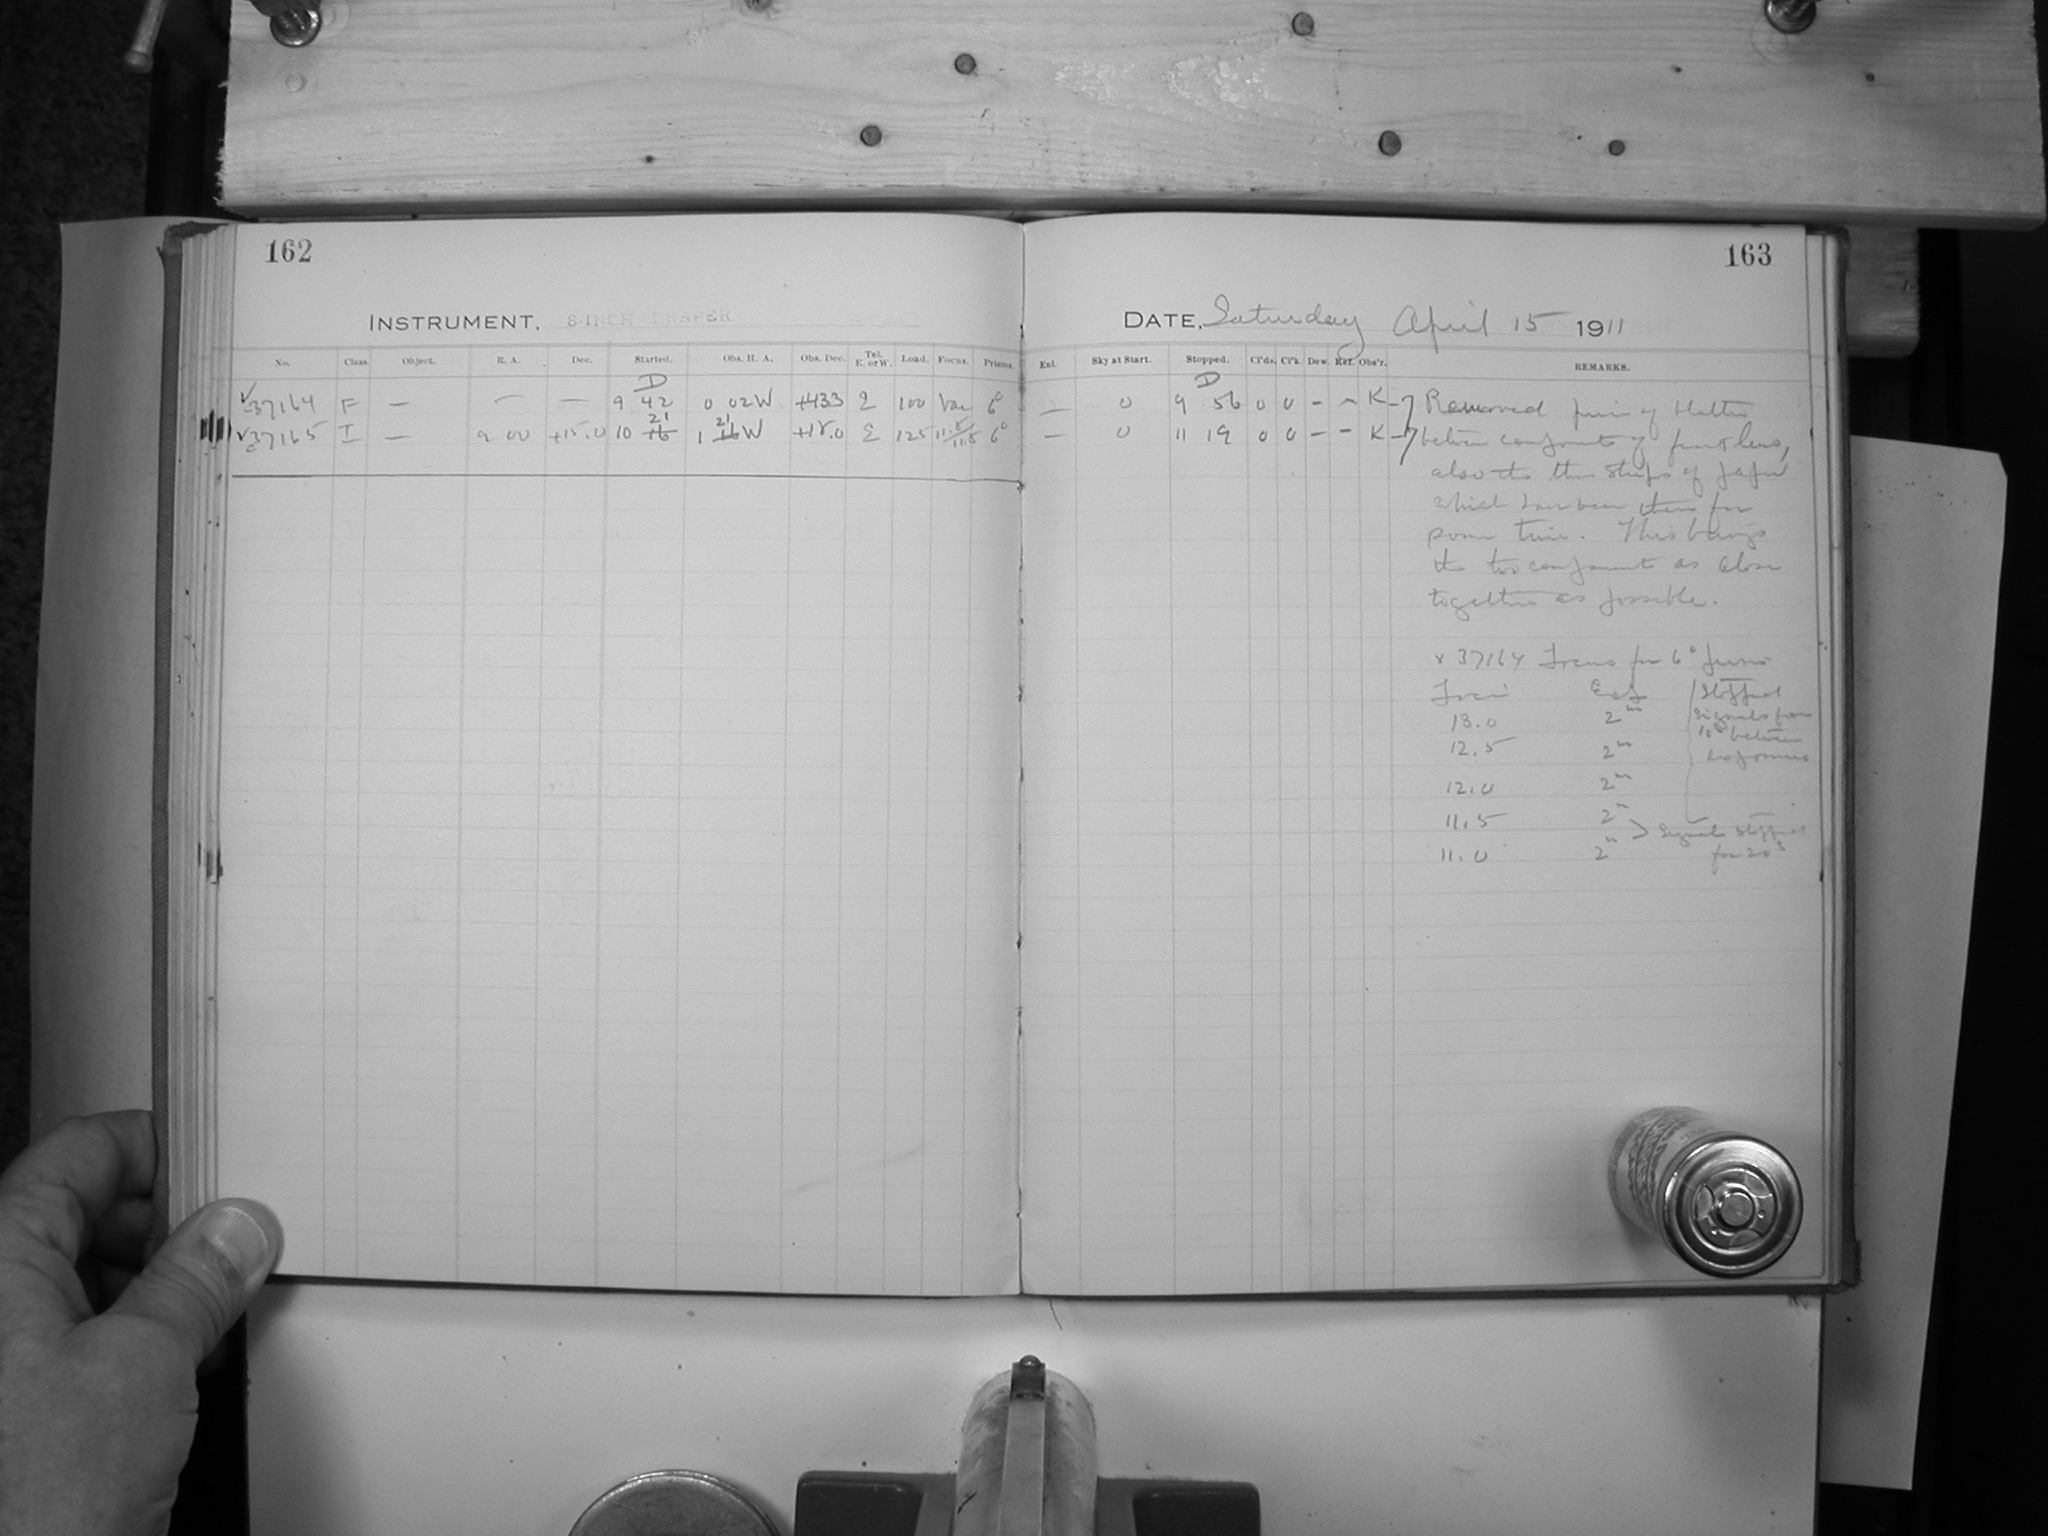 162
163
INSTRUMENT, 8-INCH DRAPER
DATE, Saturday April 15 1911
No. Class. Object. R. A. Dec. Started. Obs. H. A. Obs. Dec. Tel. E. or W. Load. Focus. Prisms.
Enl. Sky at Start. Stopped. Cl'ds. Cl'k. Dew. Ref. Obs'r. REMARKS.
D
D
37164 F — — — 9 42 0 02W +433 100 Var 6°
— 0 9 56 0 0 - - K
21 21
37165 I — 9 00 +15.0 10 16 1 16W +15.0 125 11.5/11.5 6°
— 0 11 19 0 0 - - K
Removed of
between components of lens,
also the three strips of paper
which have been there for
some time. This brings
the two components as close
together as possible.
v 37164 Focus for 6° prism
Foci Exp Stopped
13.0 2m signals for
10s between
12.5 2m exposures
12.0 2m
11.5 2m
Signals stopped
11.0 2m for 20s